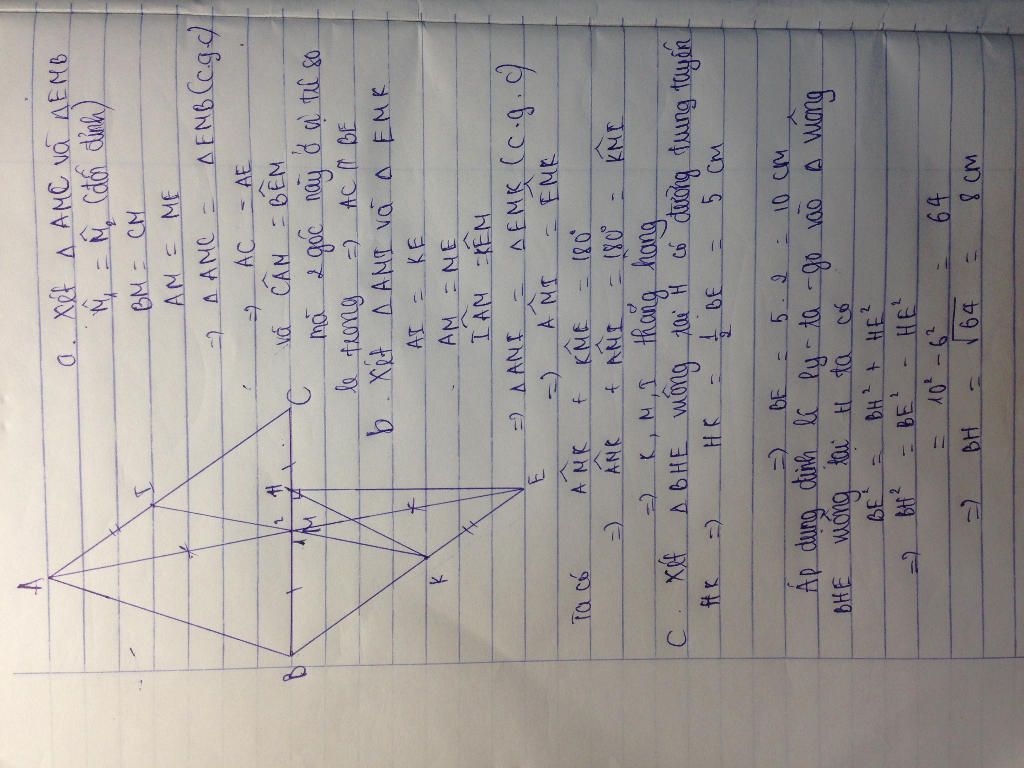 A
I
B
1
2
M
H
C
K
E
a. Xét Δ AMC và Δ EMB
M̂₁ = M̂₂ (đối đỉnh)
BM = CM
AM = ME
=> Δ AMC = Δ EMB (c.g.c)
=> AC = AE
và CÂM = BÊM
mà 2 góc này ở vị trí so
le trong => AC // BE
b. Xét Δ AMI và Δ EMK
AI = KE
AM = ME
IÂM = KÊM
=> Δ AMI = Δ EMK (c.g.c)
=> AM̂I = EM̂K
Ta có AM̂K + KM̂E = 180°
=> AM̂K + AM̂I = 180° = KM̂I
=> K, M, I thẳng hàng
C. Xét Δ BHE vuông tại H có đường trung tuyến
HK => HK = 1/2 BE = 5 cm
=> BE = 5.2 = 10 cm
Áp dụng định lí Py-ta-go vào Δ vuông
BHE vuông tại H ta có
BE² = BH² + HE²
=> BH² = BE² - HE²
= 10² - 6² = 64
=> BH = √64 = 8 cm